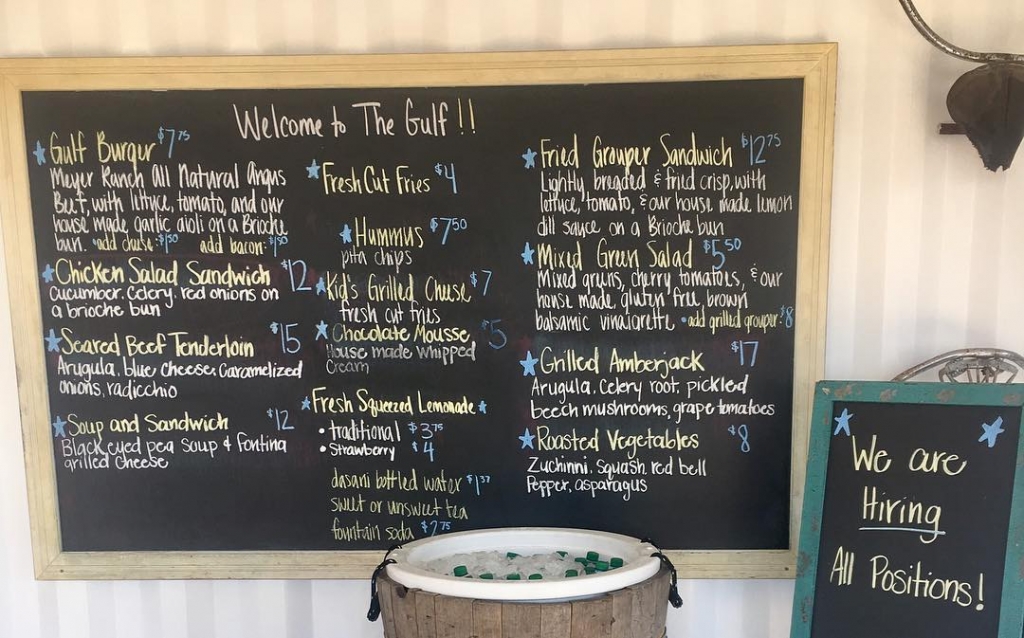 Welcome to The Gulf!!
Gulf Burger $7.75
Meyer Ranch All Natural Angus
Beef, with lettuce, tomato, and our
house made garlic aioli on a Brioche
bun. •add cheese: $1.50 add bacon: $1.50
Chicken Salad Sandwich $12
Cucumber, Celery, red onions on
a brioche bun
Seared Beef Tenderloin $15
Arugula, blue cheese, Caramelized
onions, radicchio
Soup and Sandwich $12
Black eyed pea Soup & Fontina
grilled cheese
Fresh Cut Fries $4
Hummus $7.50
pita chips
Kid's Grilled Cheese $7
fresh cut fries
Chocolate Mousse $5
House made Whipped
Cream
Fresh Squeezed Lemonade
• traditional $3.75
• Strawberry $4
dasani bottled water $1.37
sweet or unsweet tea
fountain soda $2.75
Fried Grouper Sandwich $12.75
Lightly, breaded & fried crisp, with
lettuce, tomato, & our house made lemon
dill sauce on a Brioche bun
Mixed Green Salad $5.50
Mixed greens, cherry tomatoes, & our
house made, gluten free, brown
balsamic vinaigrette •add grilled grouper: $8
Grilled Amberjack $17
Arugula, Celery root, pickled
beech mushrooms, grape tomatoes
Roasted Vegetables $8
Zuchinni, Squash, red bell
Pepper, asparagus
We are
Hiring
All Positions!